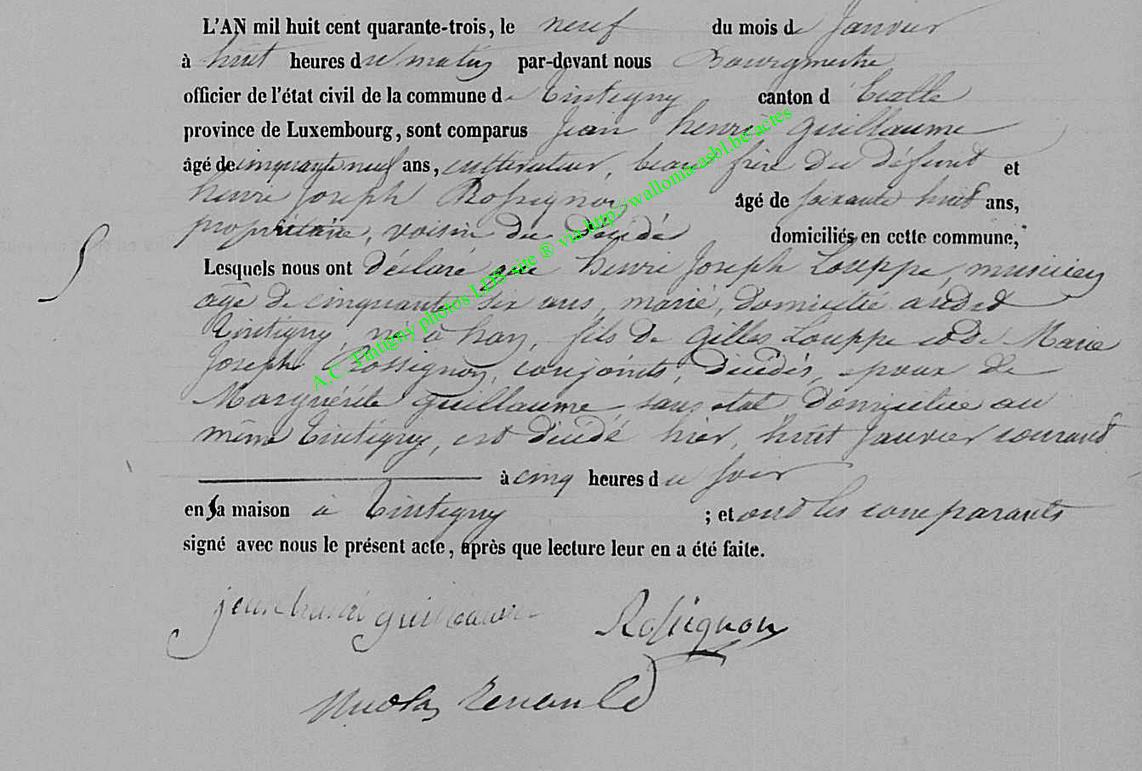 L'AN mil huit cent quarante-trois, le neuf du mois d Janvier
à huit heures du matin par-devant nous Bourgmestre
officier de l'état civil de la commune de Tintigny canton d'Etalle
province de Luxembourg, sont comparus Jean henri guillaume
âgé de cinquante neuf ans, cultivateur, beau frère du défunt et
henri Joseph Rossignon âgé de soixante huit ans,
propriétaire, voisin du décédé domiciliés en cette commune,
Lesquels nous ont déclaré que henri Joseph Louppe, musicien
âgé de cinquante six ans, marié, domicilié audit
Tintigny, né à han, fils de gilles Louppe et de Marie
Joseph Rossignon, conjoints, décédés, époux de
Marguérite guillaume, sans état domiciliée au
même Tintigny, est décédé hier, huit Janvier courant
à cinq heures du soir
en sa maison à Tintigny ; et ont les comparants
signé avec nous le présent acte, après que lecture leur en a été faite.
jean henri guillaume Rossignon
Nicolas
A.C. Tintigny photos LDS site ® via http://wallonia-asbl.be/actes